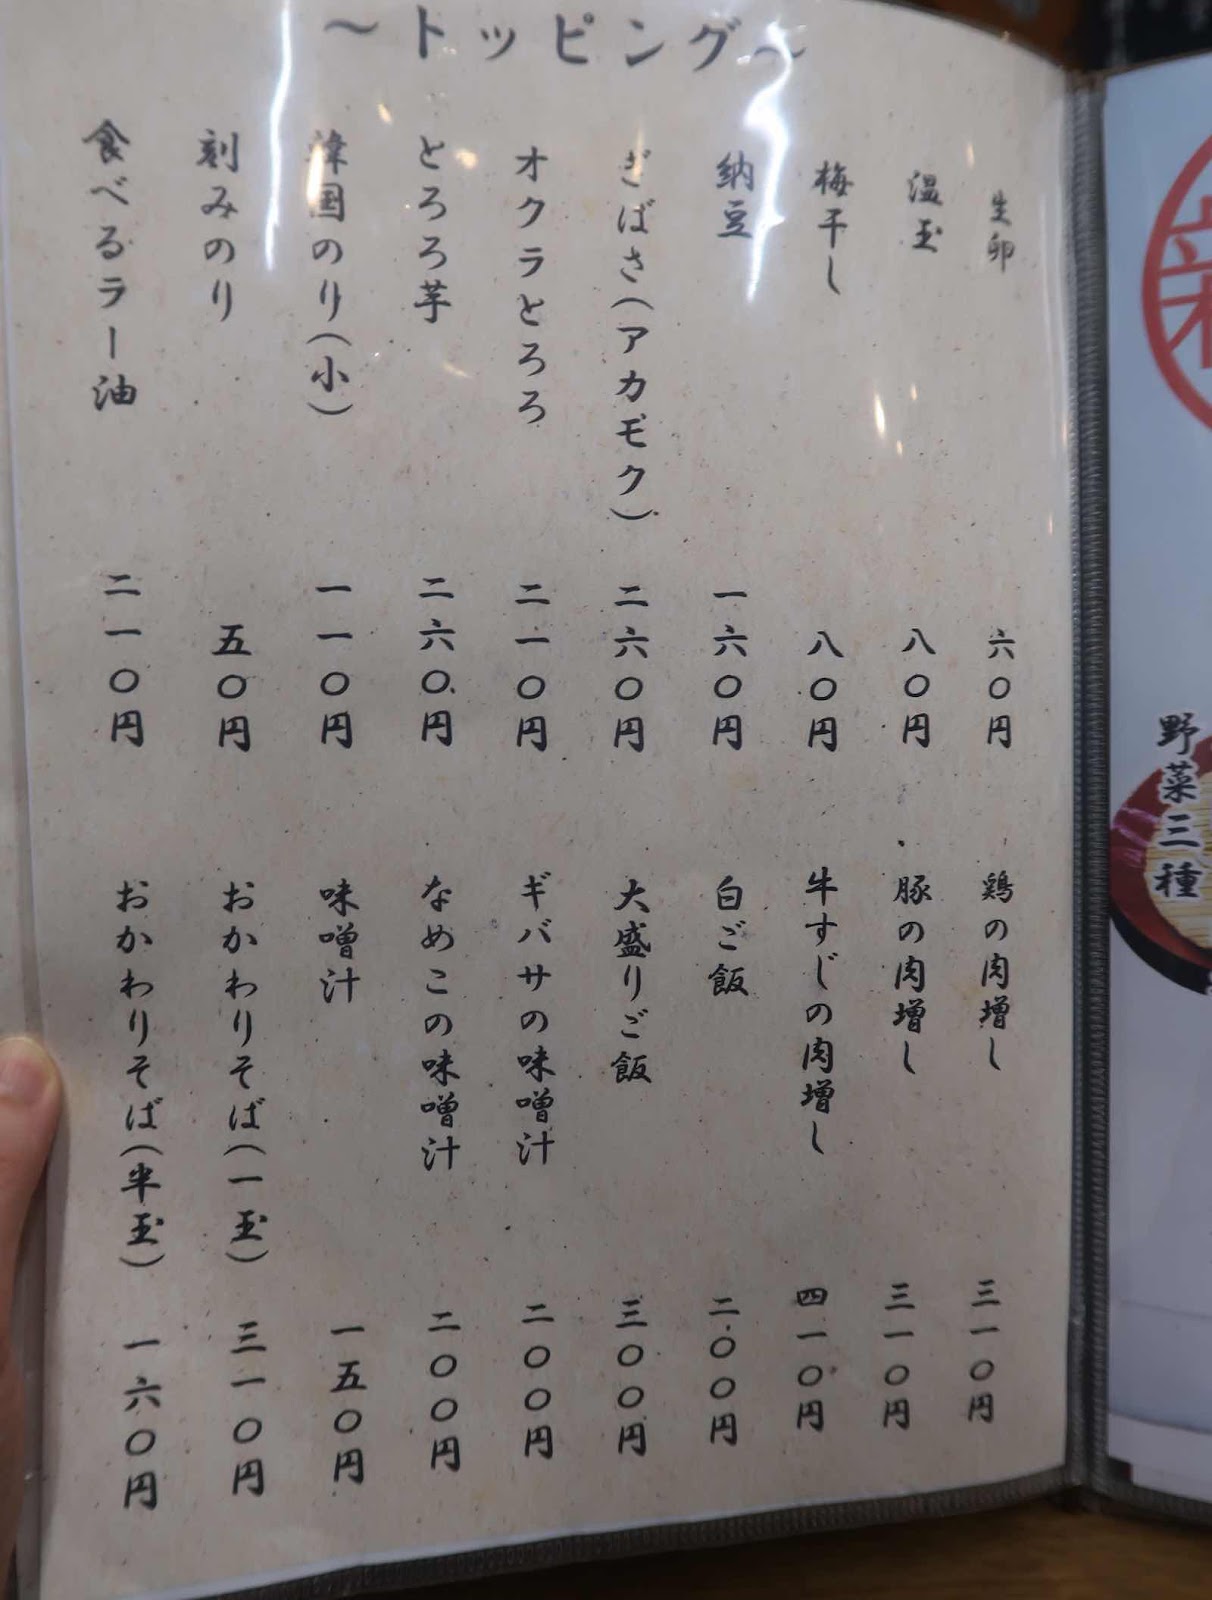 ～トッピング～
生卵 六〇円
温玉 八〇円
梅干し 八〇円
納豆 一六〇円
ぎばさ(アカモク) 二六〇円
オクラとろろ 二一〇円
とろろ芋 二六〇円
韓国のり(小) 一一〇円
刻みのり 五〇円
食べるラー油 二一〇円
鶏の肉増し 三一〇円
豚の肉増し 三一〇円
牛すじの肉増し 四一〇円
白ご飯 二〇〇円
大盛りご飯 三〇〇円
ギバサの味噌汁 二〇〇円
なめこの味噌汁 二〇〇円
味噌汁 一五〇円
おかわりそば(一玉) 三一〇円
おかわりそば(半玉) 一六〇円
野菜三種